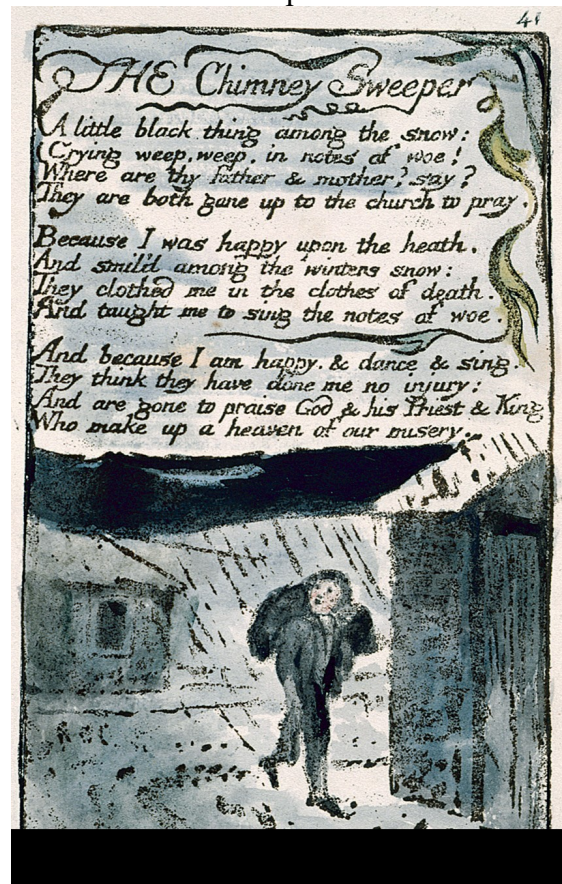 41
THE Chimney Sweeper
A little black thing among the snow:
Crying weep, weep, in notes of woe!
Where are thy father & mother? say?
They are both gone up to the church to pray.
Because I was happy upon the heath,
And smil'd among the winters snow:
They clothed me in the clothes of death.
And taught me to sing the notes of woe.
And because I am happy, & dance & sing,
They think they have done me no injury:
And are gone to praise God & his Priest & King
Who make up a heaven of our misery.